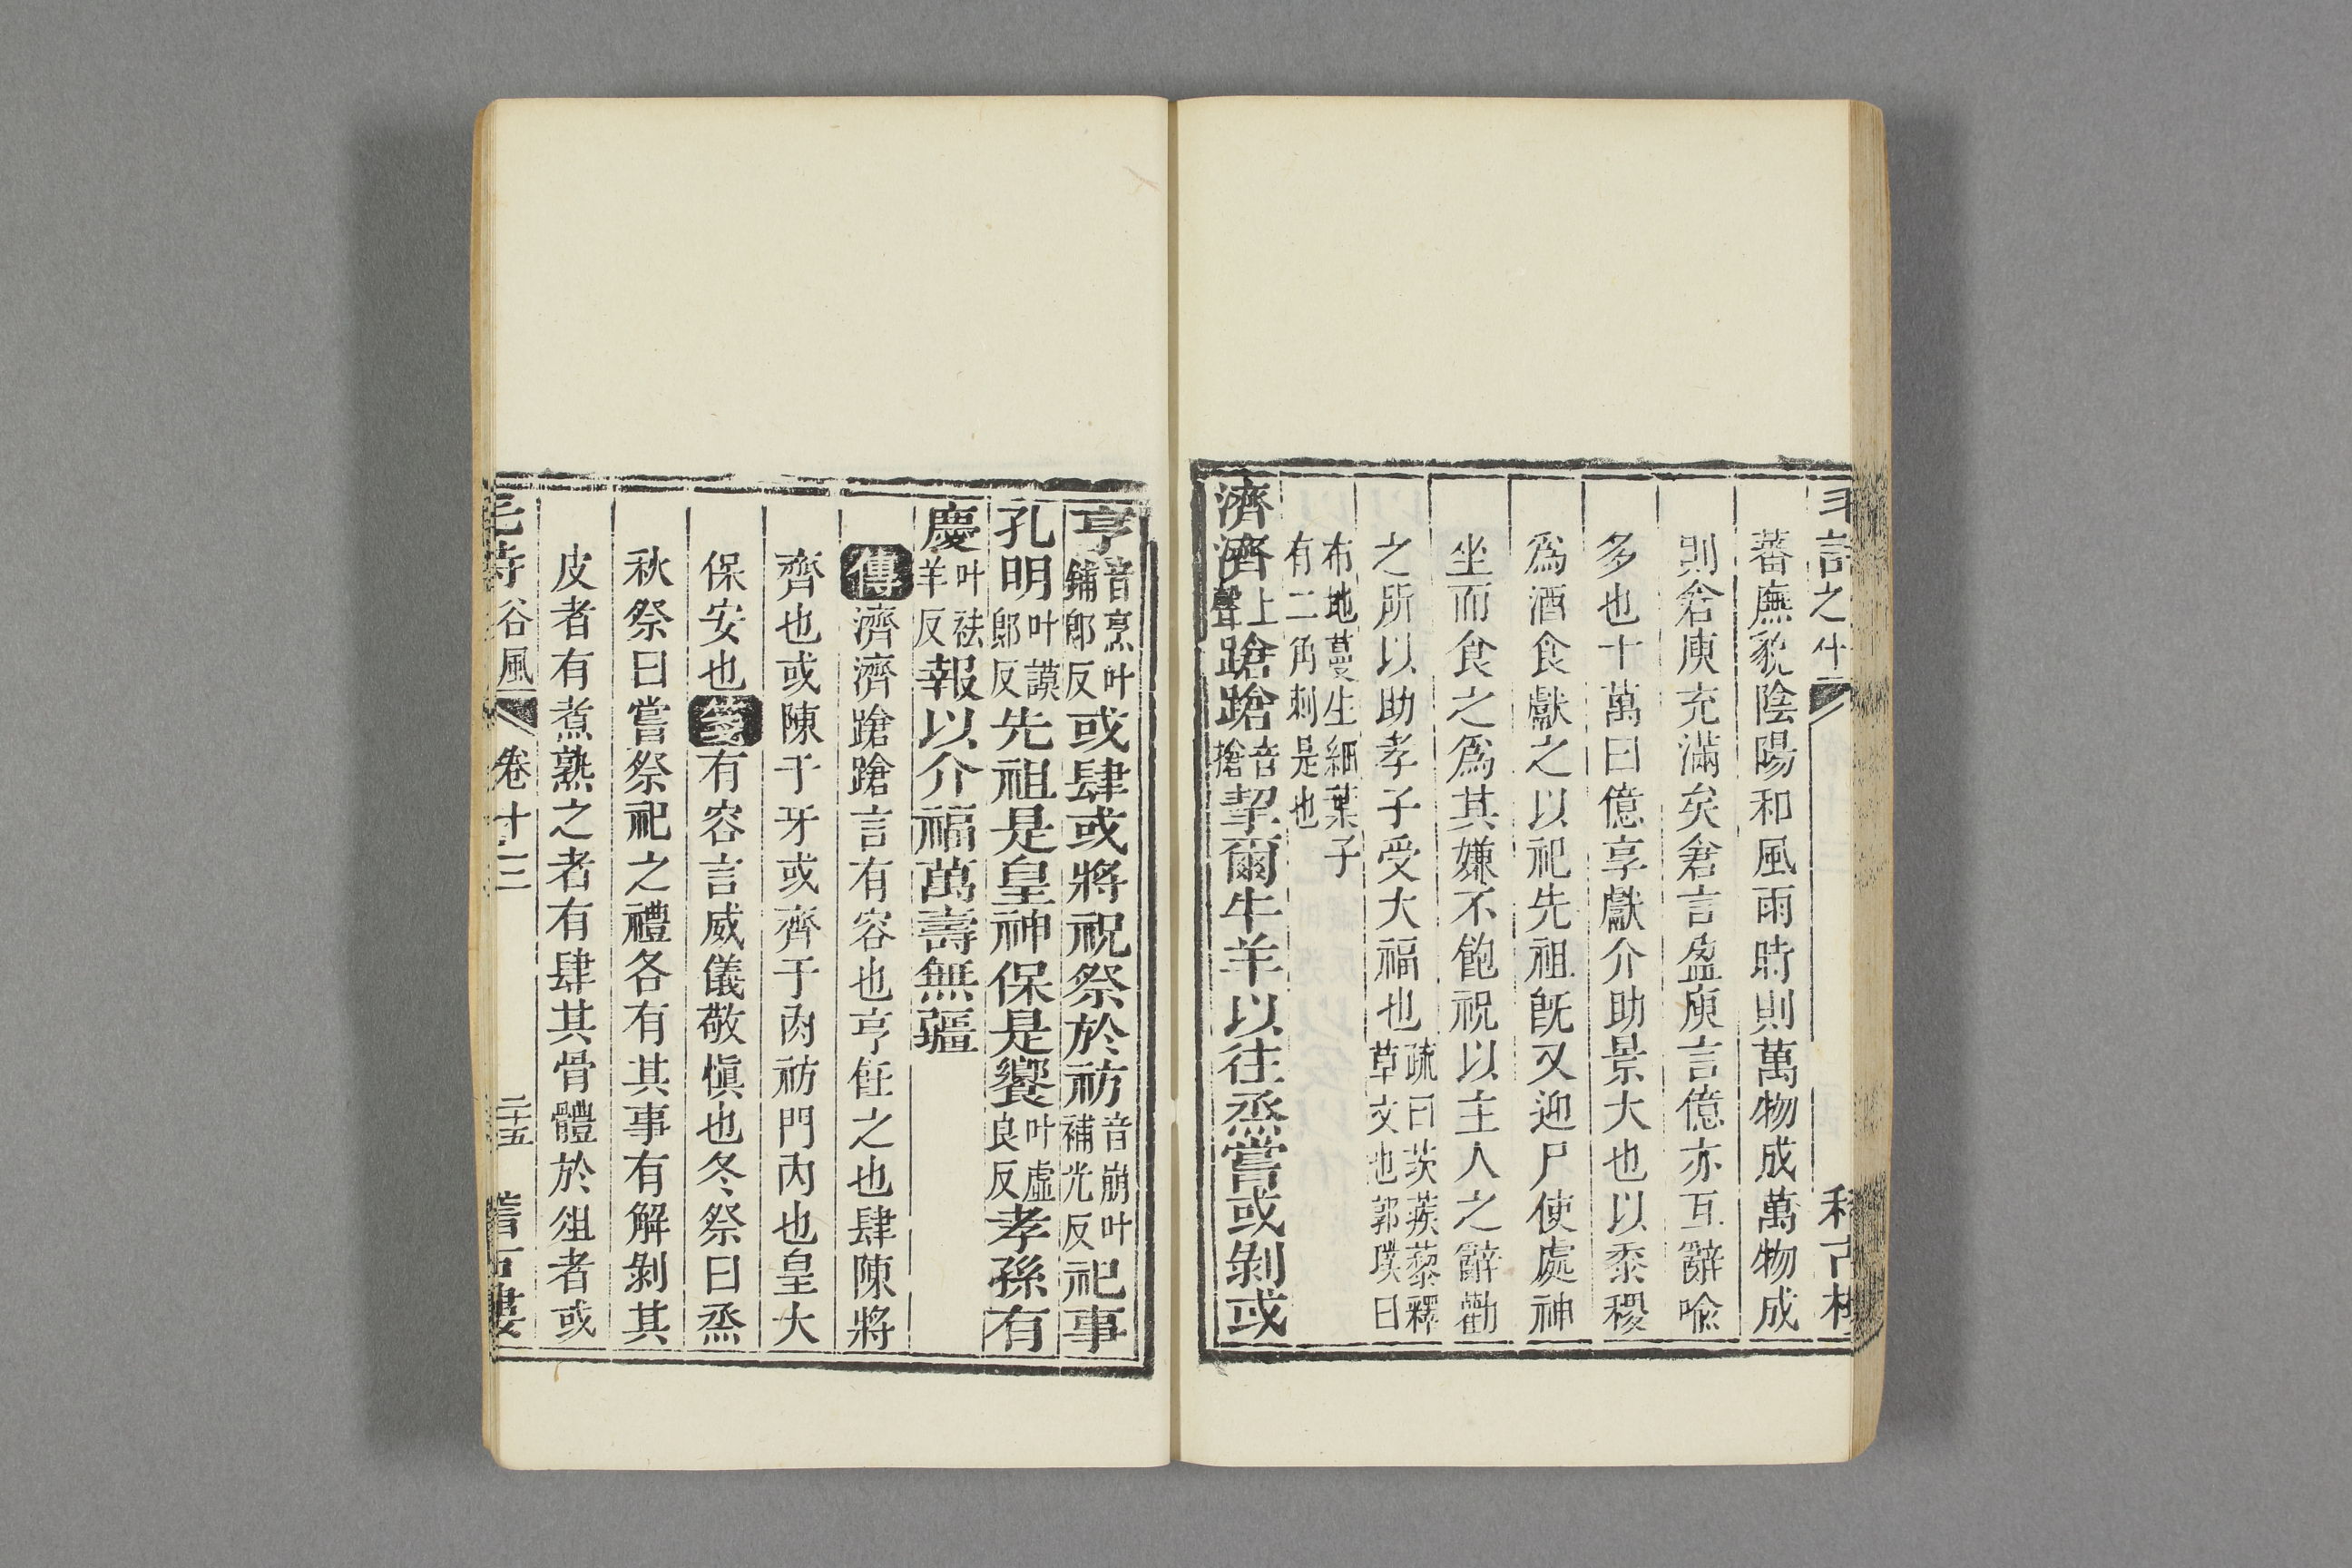 蕃廡貌陰陽和風雨時則萬物成萬物成
則倉庾充滿矣倉言盈庾言億亦互辭喩
多也十萬曰億享獻介助景大也以黍稷
爲酒食獻之以祀先祖旣又迎尸使處神
坐而食之爲其嫌不飽祝以主人之辭勸
之所以助孝子受大福也疏曰茨蒺藜釋草文也郭璞曰
布地蔓生細葉子有二角刺是也
濟濟上聲蹌蹌音搶絜爾牛羊以往烝嘗或剝或
亨音烹叶鋪郎反或肆或將祝祭於祊音崩叶補光反祀事
孔明叶謨郎反先祖是皇神保是饗叶虛良反孝孫有
慶叶祛羊反報以介福萬壽無疆
傳濟濟蹌蹌言有容也亨飪之也肆陳將
齊也或陳于牙或齊于肉祊門內也皇大
保安也箋有容言威儀敬愼也冬祭曰烝
秋祭曰嘗祭祀之禮各有其事有解剝其
皮者有煮熟之者有肆其骨體於俎者或
毛詩谷風 卷十三 二十五 稽古樓